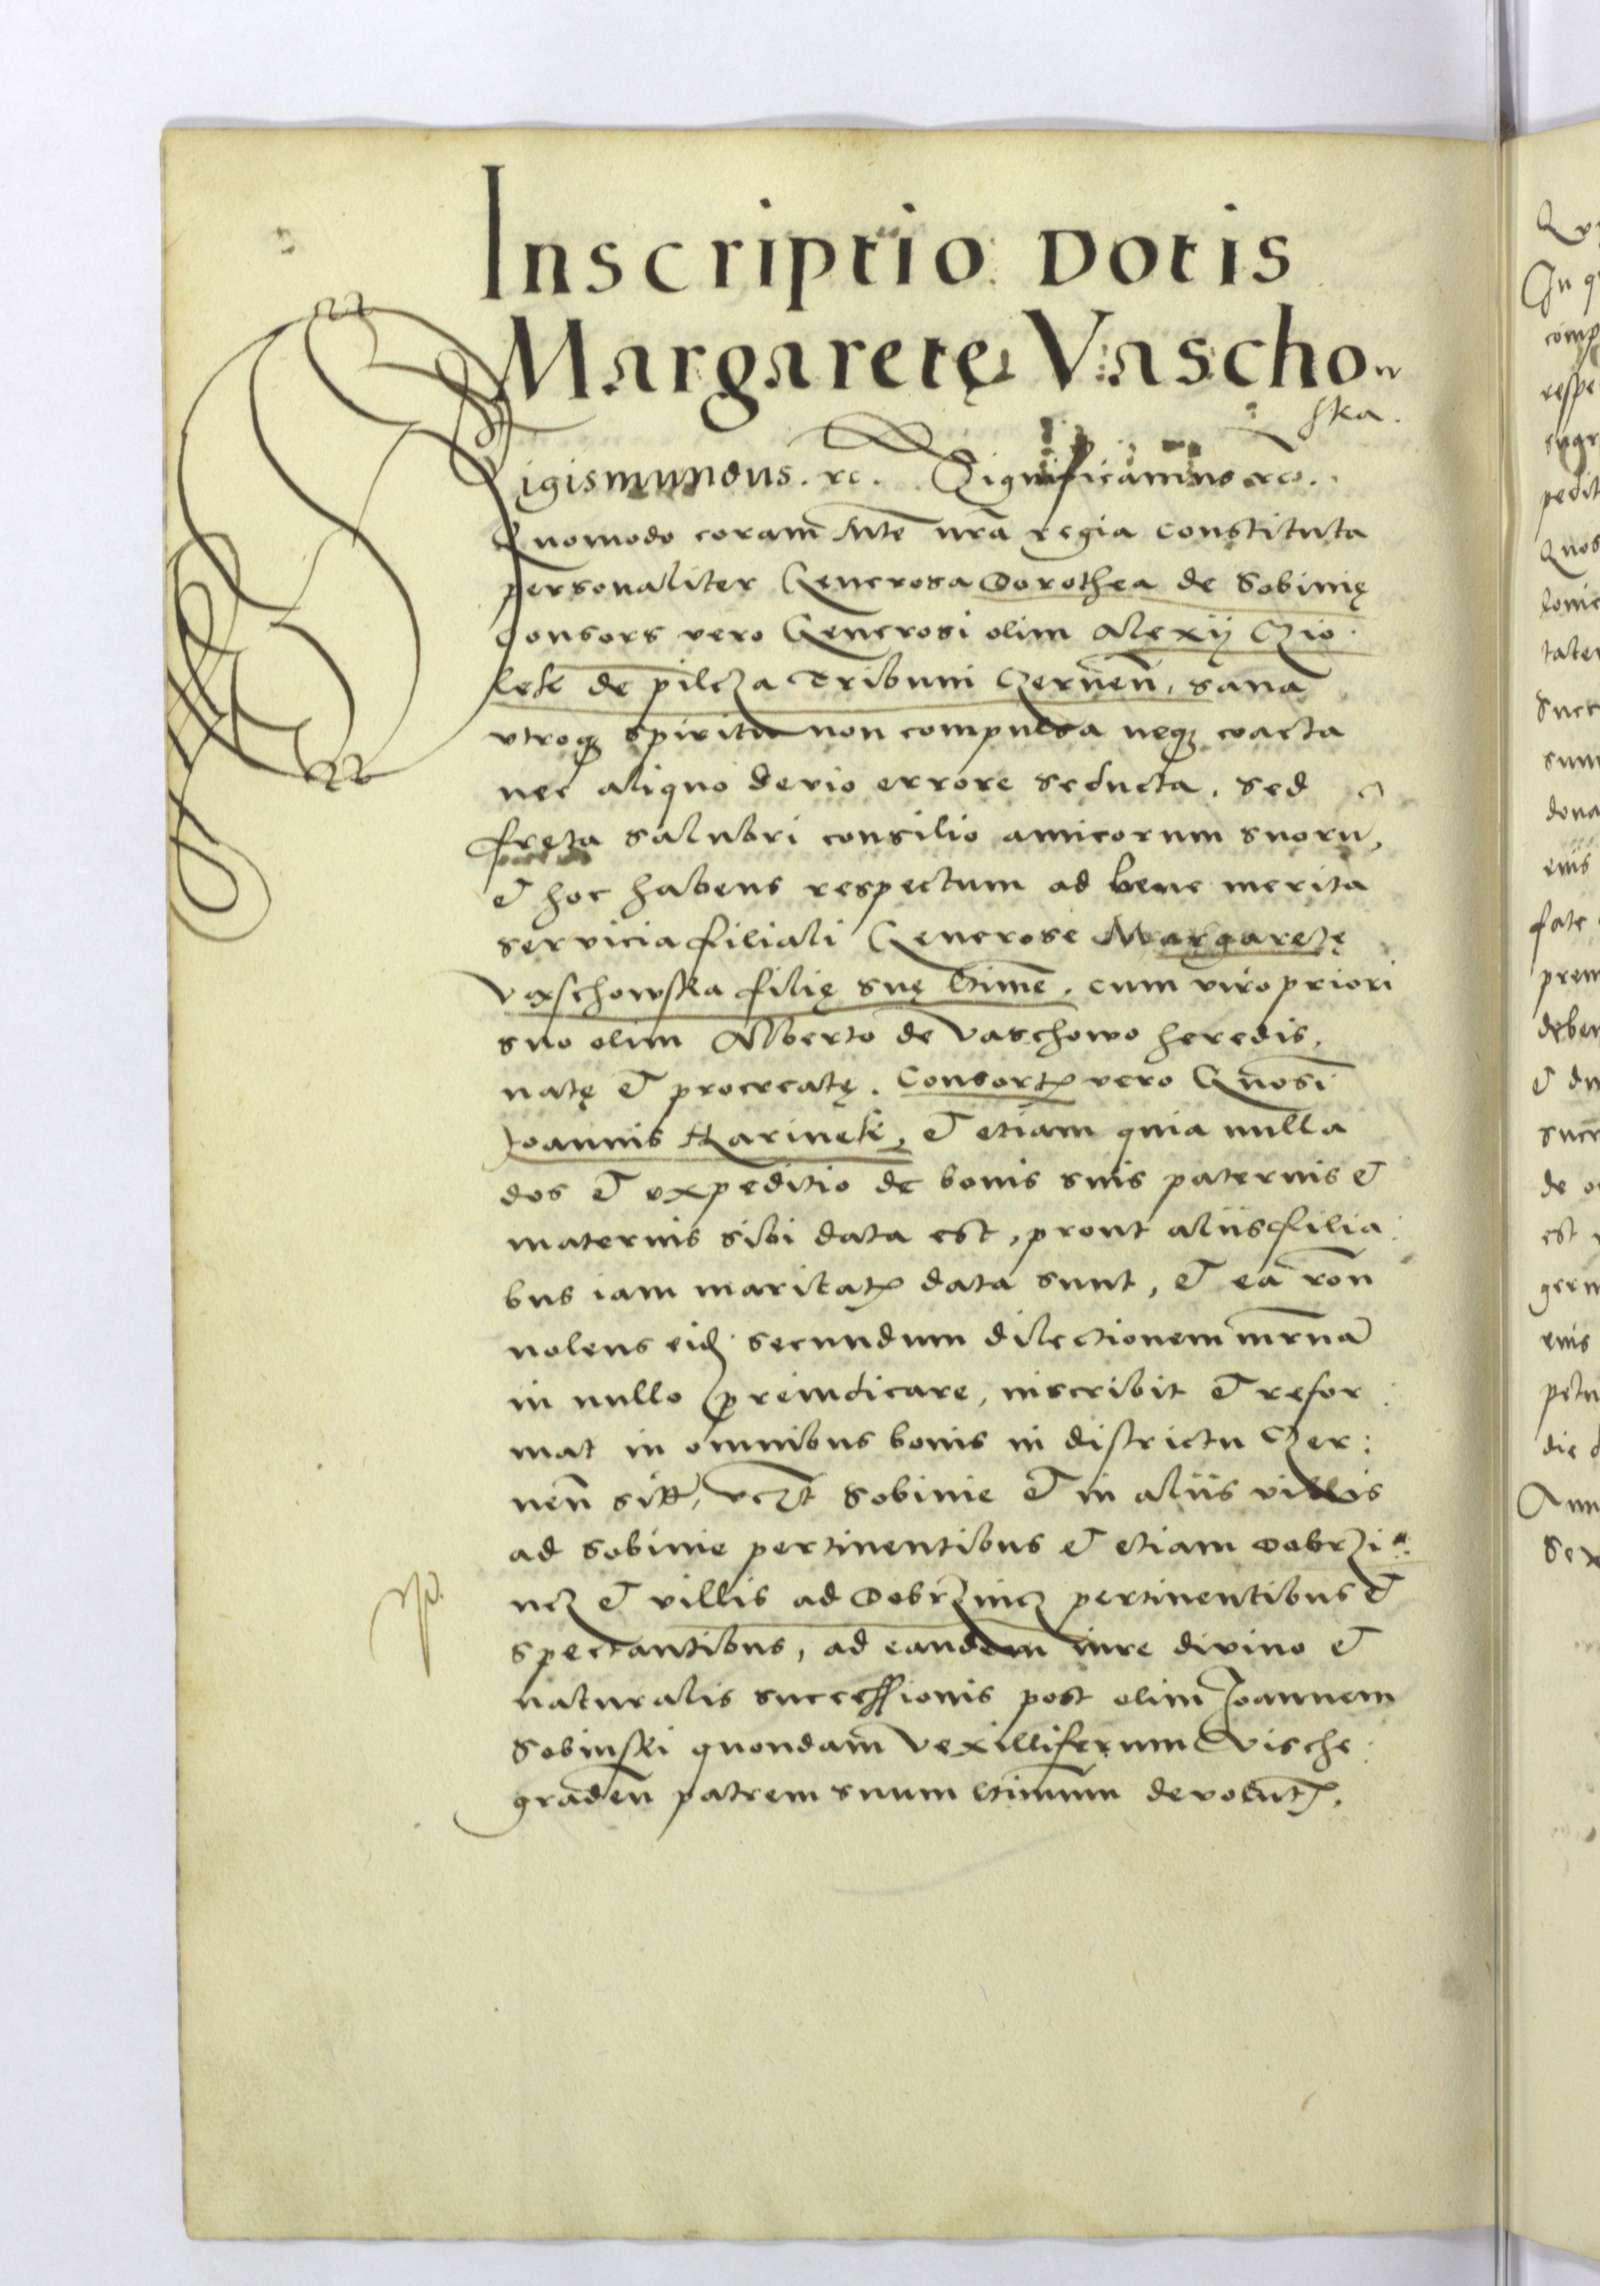 Inscriptio Dotis
Margaretę Vaschow
ska.
Sigismundus. rc. Significamus rc.
Quomodo coram Mte nrā regia constituta
personaliter Generosa Dorothea de Sobinię
consors vero Generosi olim Alexÿ Czio
lek de pilcza Tribuni Czernen̄. sana
vtroq₃ spiritu non compulsa neq₃ coacta
nec aliquo devio errore seducta. sed
fręta salubri consilio amicorum suorū,
et hoc habens respectum ad bene merita
servicia filiali Generose Margaretę
Vaschowska filię suę gtimē. cum viro priori
suo olim Alberto de Vaschowo heredis,
natę et procreatę. Consortꝭ vero Gnōsi
Joannis Karinski, et etiam quia nulla
dos et expeditio de bonis suis paternis et
maternis sibi data est, prout aliis filia:
bus iam maritatꝭ data sunt, et ea rōn
nolens eid₃ secundum dilectionem mr̄nā
in nullo preiudicare, inscribit et refor:
mat in omnibus bonis in districtu Czer:
nen̄ sitꝭ, vcꝫt Sobinie et in aliis villis
ad Sobinie pertinentibus et etiam Dobrzi:
ncz et villis ad Dobrzincz pertinentibus et
spectantibus, ad eandem iure divino et
naturalis successionis post olim Joannem
Sobinski quondam Vexilliferum Vische:
graden̄ patrem suum gtimum devolutꝭ.